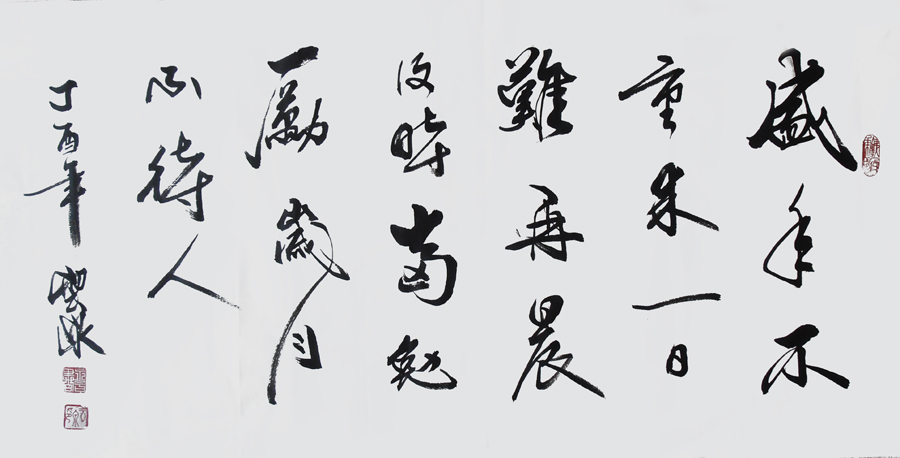 盛年不
重来一日
難再晨
及時當勉
勵歲月
不待人
丁酉年